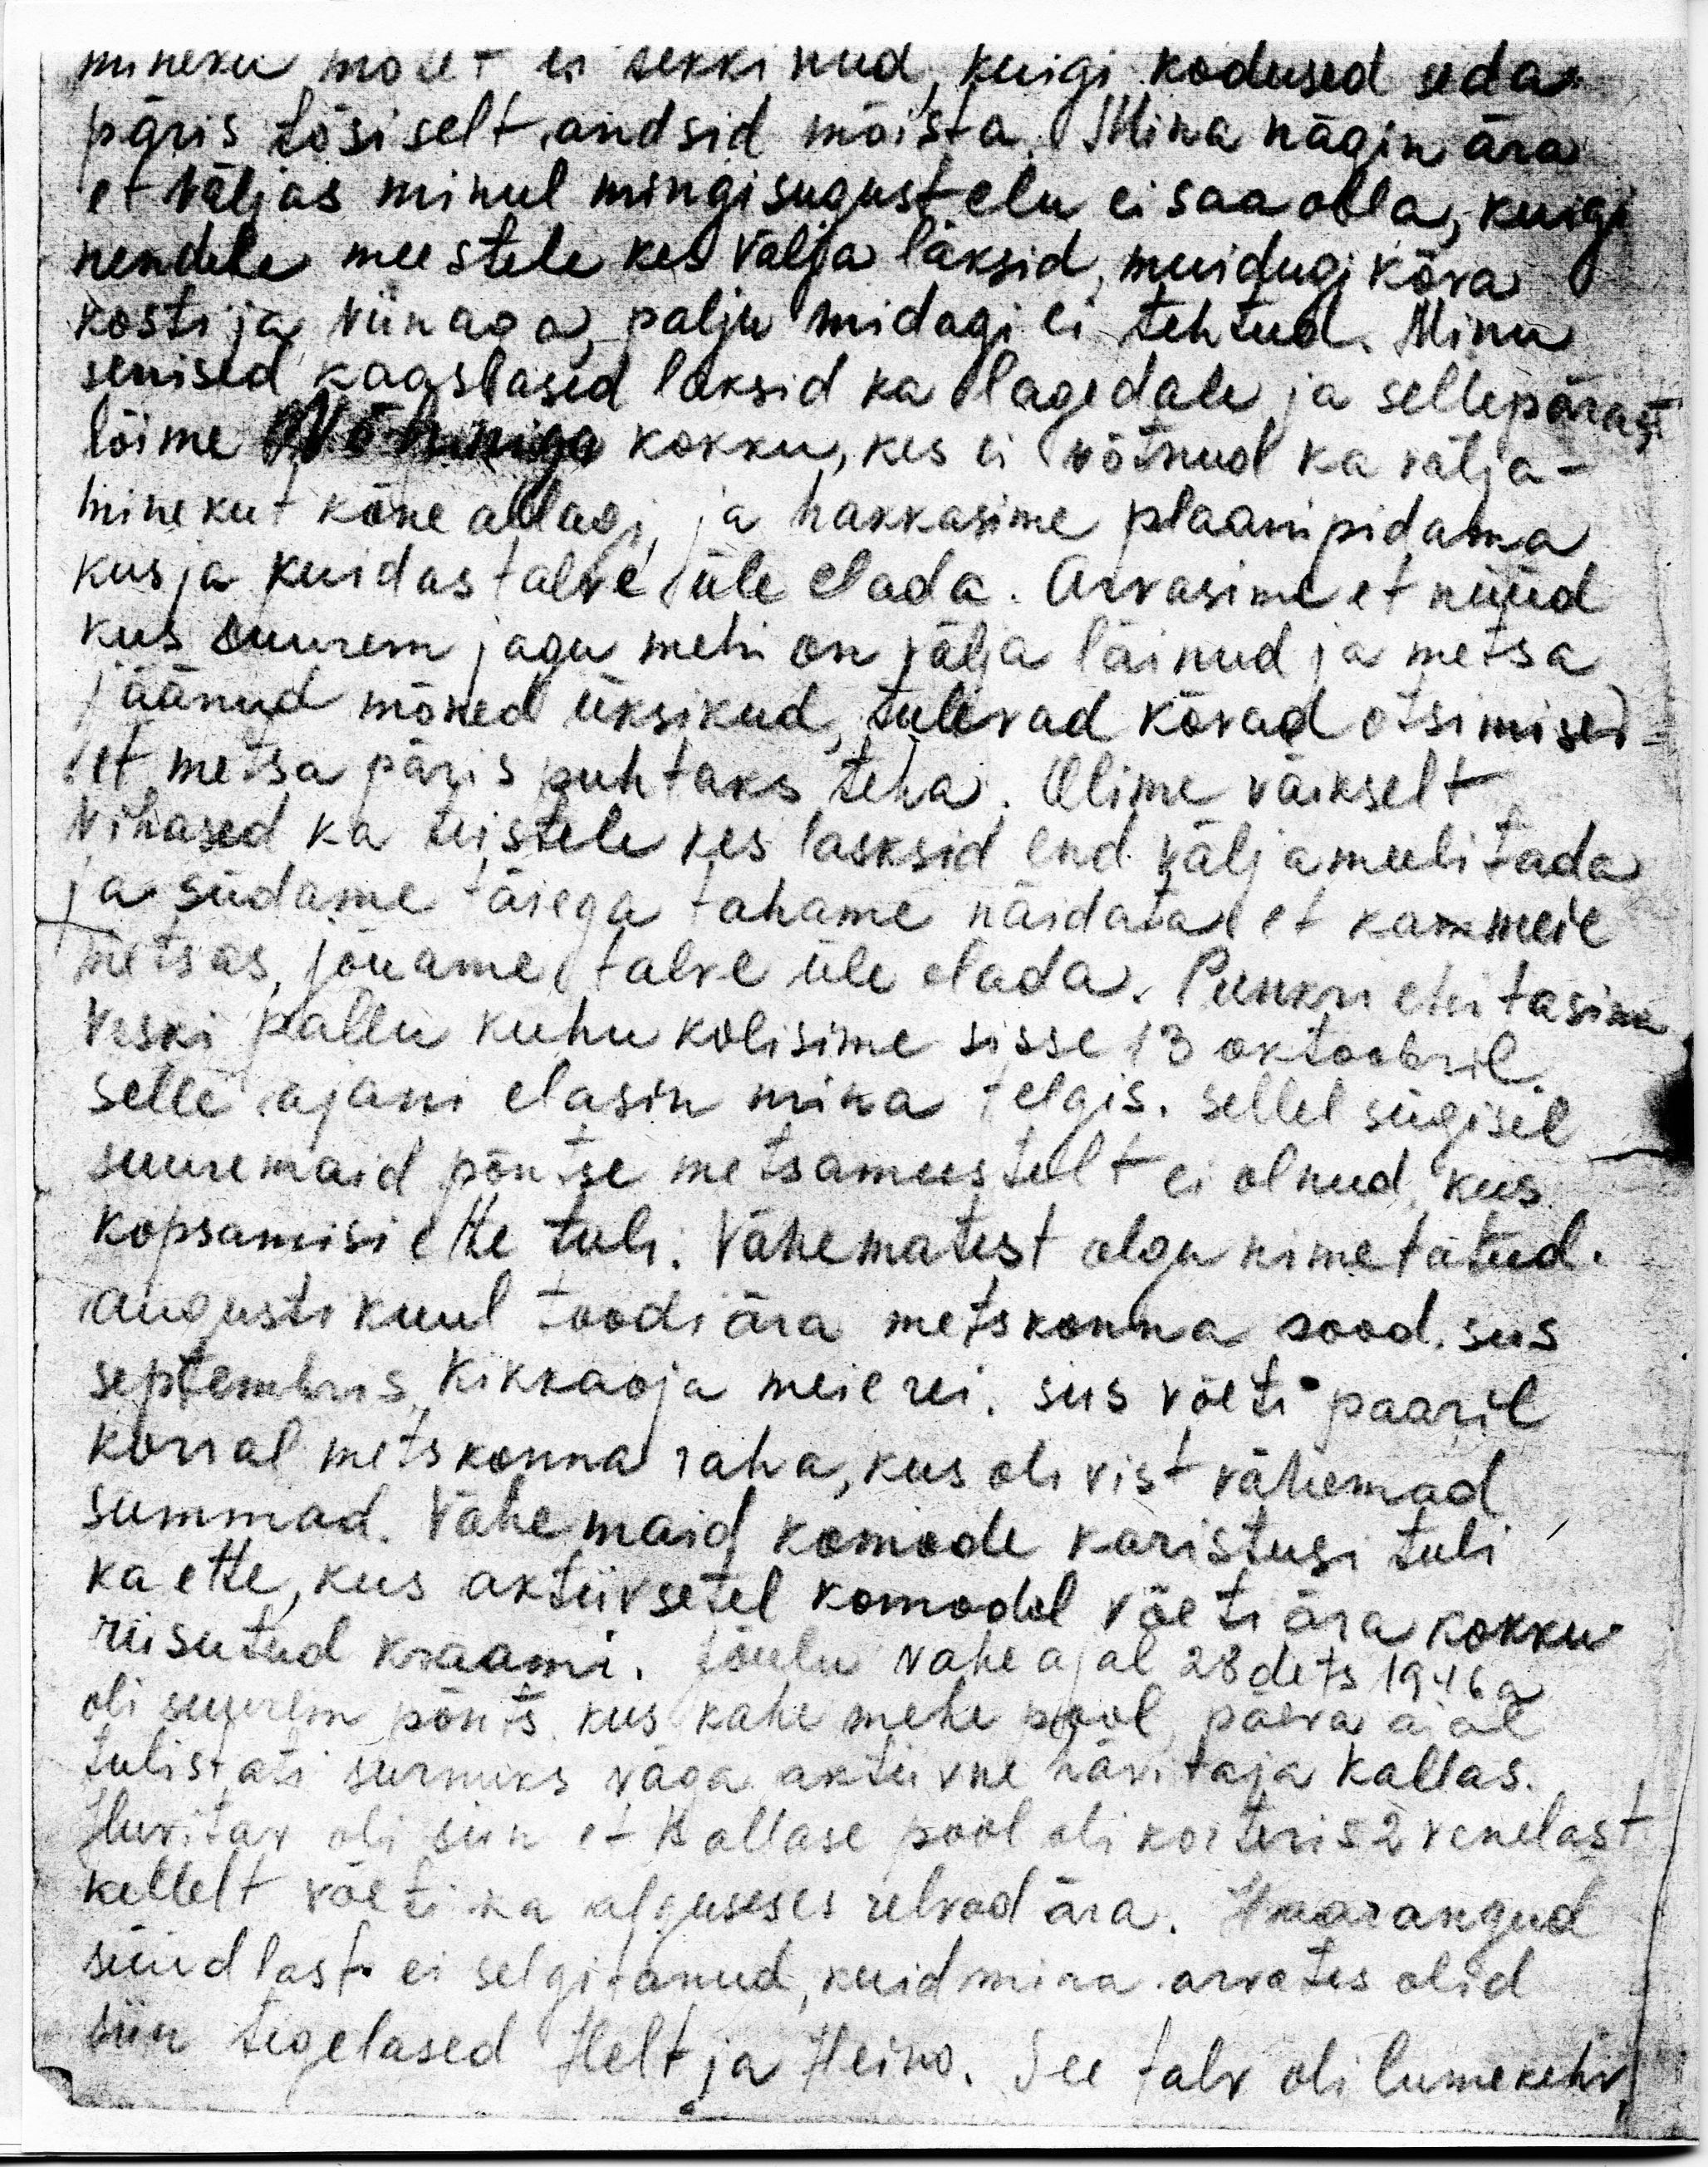 mineku mõtet ei tekkinud, kuigi kodused seda
päris tõsiselt andsid mõista. Mina nägin ära
et väljas minul mingisugust elu ei saa olla, kuigi
nendele meestele kes välja läksid, muidugi kõva
kosti ja viinaga, palju midagi ei tehtud. Minu
senised kaaslased läksid ka lagedale ja sellepärast
lõime kokku, kes ei võtnud ka välja-
minekut kõne allagi, ja hakkasime plaani pidama
kus ja kuidas talve üle elada. Arvasime et nüüd
kus suurem jagu mehi on välja läinud ja metsa
jäänud mõned üksikud, tulevad kõvad otsimised
et metsa päris puhtaks teha. Olime väikselt
vihased ka teistele kes lasksid end välja meelitada
ja südame täiega tahame näidata et ka meie
metsas jõuame talve üle elada. Punkri ehitasime
Veski pallu kuhu kolisime sisse 13 oktoobril.
selle ajani elasin mina telgis. sellel sügisel
suuremaid põntse metsameestelt ei olnud, kus
kopsamisi ette tuli. Vähematest olgu nimetatud.
augusti kuul toodi ära metskonna sood. siis
septembris, Kikkaoja meierei. siis võeti paaril
korral metskonna raha, kus oli vist vähemad
summad. Vähemaid komode karistusi tuli
ka ette, kus aktiivsetel komodel võeti ära kokku
riisutud kraami. Jõulu vaheajal 28 dets 1946 a
oli suurem põnts kus kahe mehe pool päeva ajal
tulistati surmuks väga aktiivne hävitaja Kallas.
Huvitav oli siin et Kallase pool oli korteris 2 venelast
kellelt võeti ka alguseses relvad ära. Haarangud
süüdlast ei selgitanud, kuid minu arvates olid
siin tegelased Helt ja Heino. See talv oli lumekehv